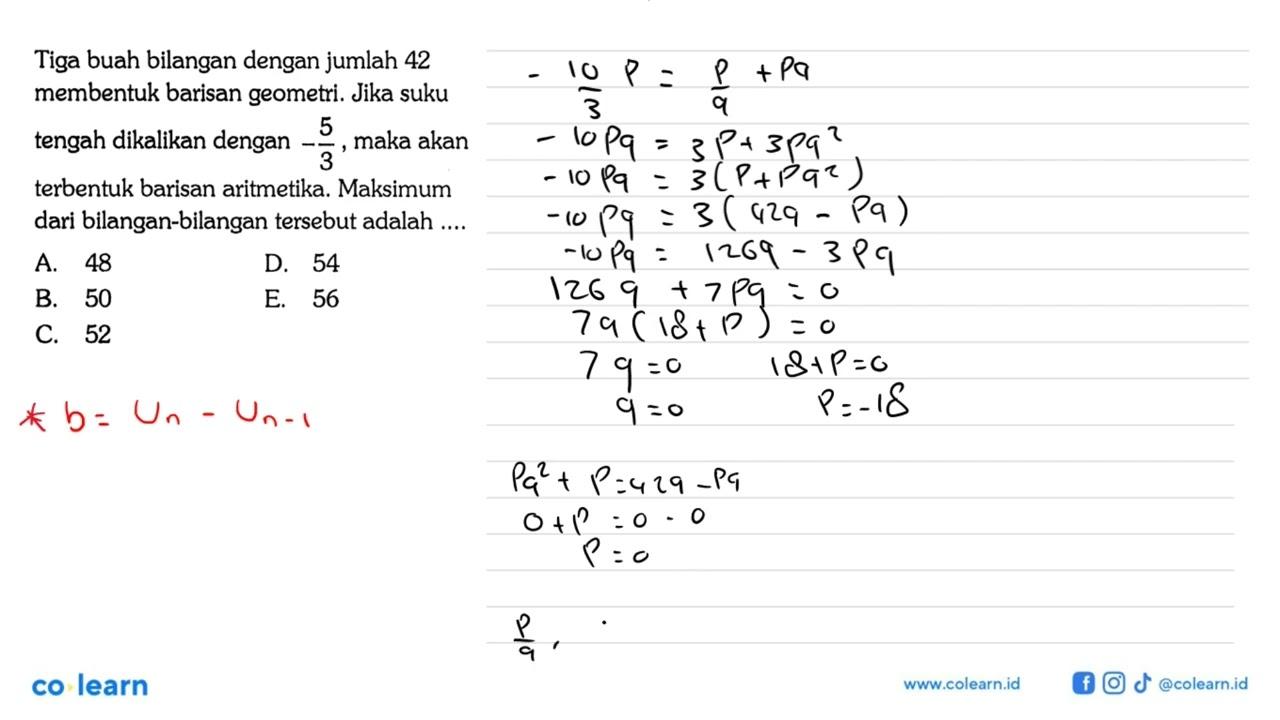 Tiga buah bilangan dengan jumlah 42
membentuk barisan geometri. Jika suku
tengah dikalikan dengan -5/3, maka akan
terbentuk barisan aritmetika. Maksimum
dari bilangan-bilangan tersebut adalah ....
A. 48 D. 54
B. 50 E. 56
C. 52
* b = Un - Un-1
- 10/3 P = P/q + Pq
- 10Pq = 3P + 3Pq²
- 10Pq = 3(P + Pq²)
-10Pq = 3(42q - Pq)
-10Pq = 126q - 3Pq
126q + 7Pq = 0
7q(18 + P) = 0
7q = 0 18 + P = 0
q = 0 P = -18
Pq² + P = 42q - Pq
0 + P = 0 - 0
P = 0
P/q ,
co learn
www.colearn.id
@colearn.id